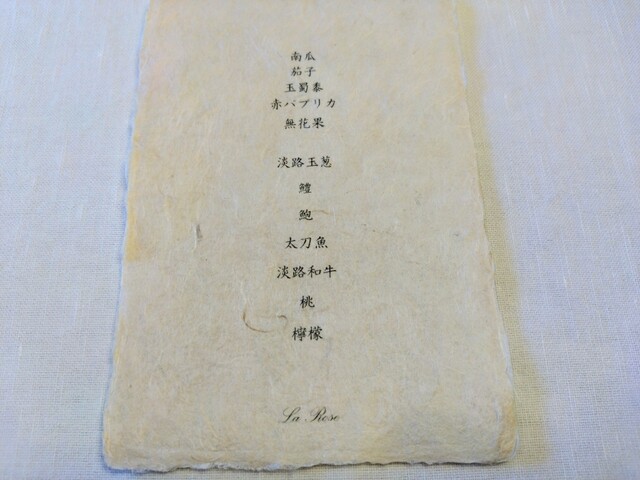 南瓜
茄子
玉蜀黍
赤パプリカ
無花果
淡路玉葱
鱧
鮑
太刀魚
淡路和牛
桃
檸檬
La Rose